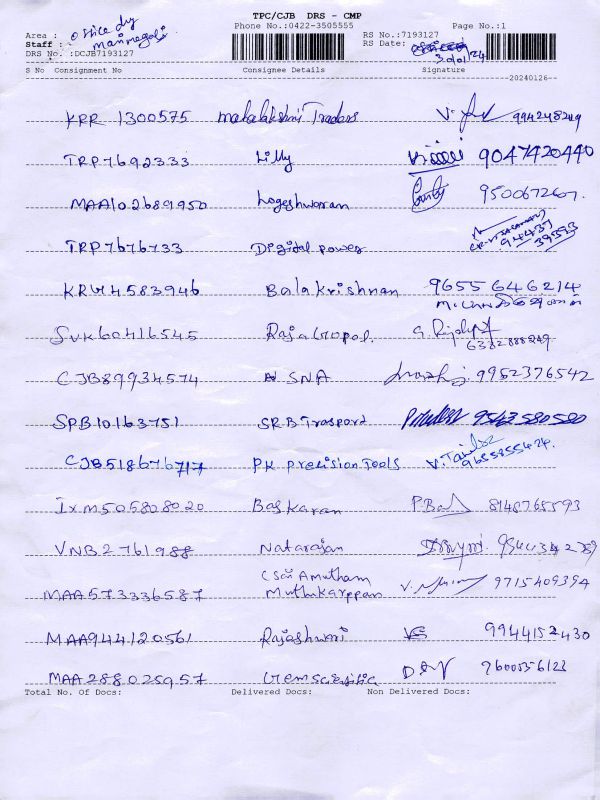 TPC/CJB DRS - CMP
Phone No.:0422-3505555 Page No.:1
Area : office dy RS No.:7193127
Staff : RS Date: 30/01/24
DRS No. :DCJB7193127
S No Consignment No Consignee Details Signature
20240126
KRR 1300575 Mahalakshmi Traders
TRP7692333 Lilly 9047420440
MAA102689950 Logeshwaran 9500672607.
TRP7676733 Digital power 94437 39593
KRW4583946 Balakrishnan 9655646214
SVK60416545 RajaGopal. G. 6382888249
CJB89934574 SNA 9952376542
SPB10163751 SRB Trasport 9543580580
CJB518676717 PK Precision Tools 9655855424.
IXM505808020 Baskaran P.Bas 8148765593
VNB2761988 Natarajan 9544342789
MAA573336587 C Sai Amutham V. 9715409354
Muthukarppan
MAA944120561 Rajeshwari VS 9944152430
MAA288025957 Gemscientific 9600556123
Total No. Of Docs: Delivered Docs: Non Delivered Docs: